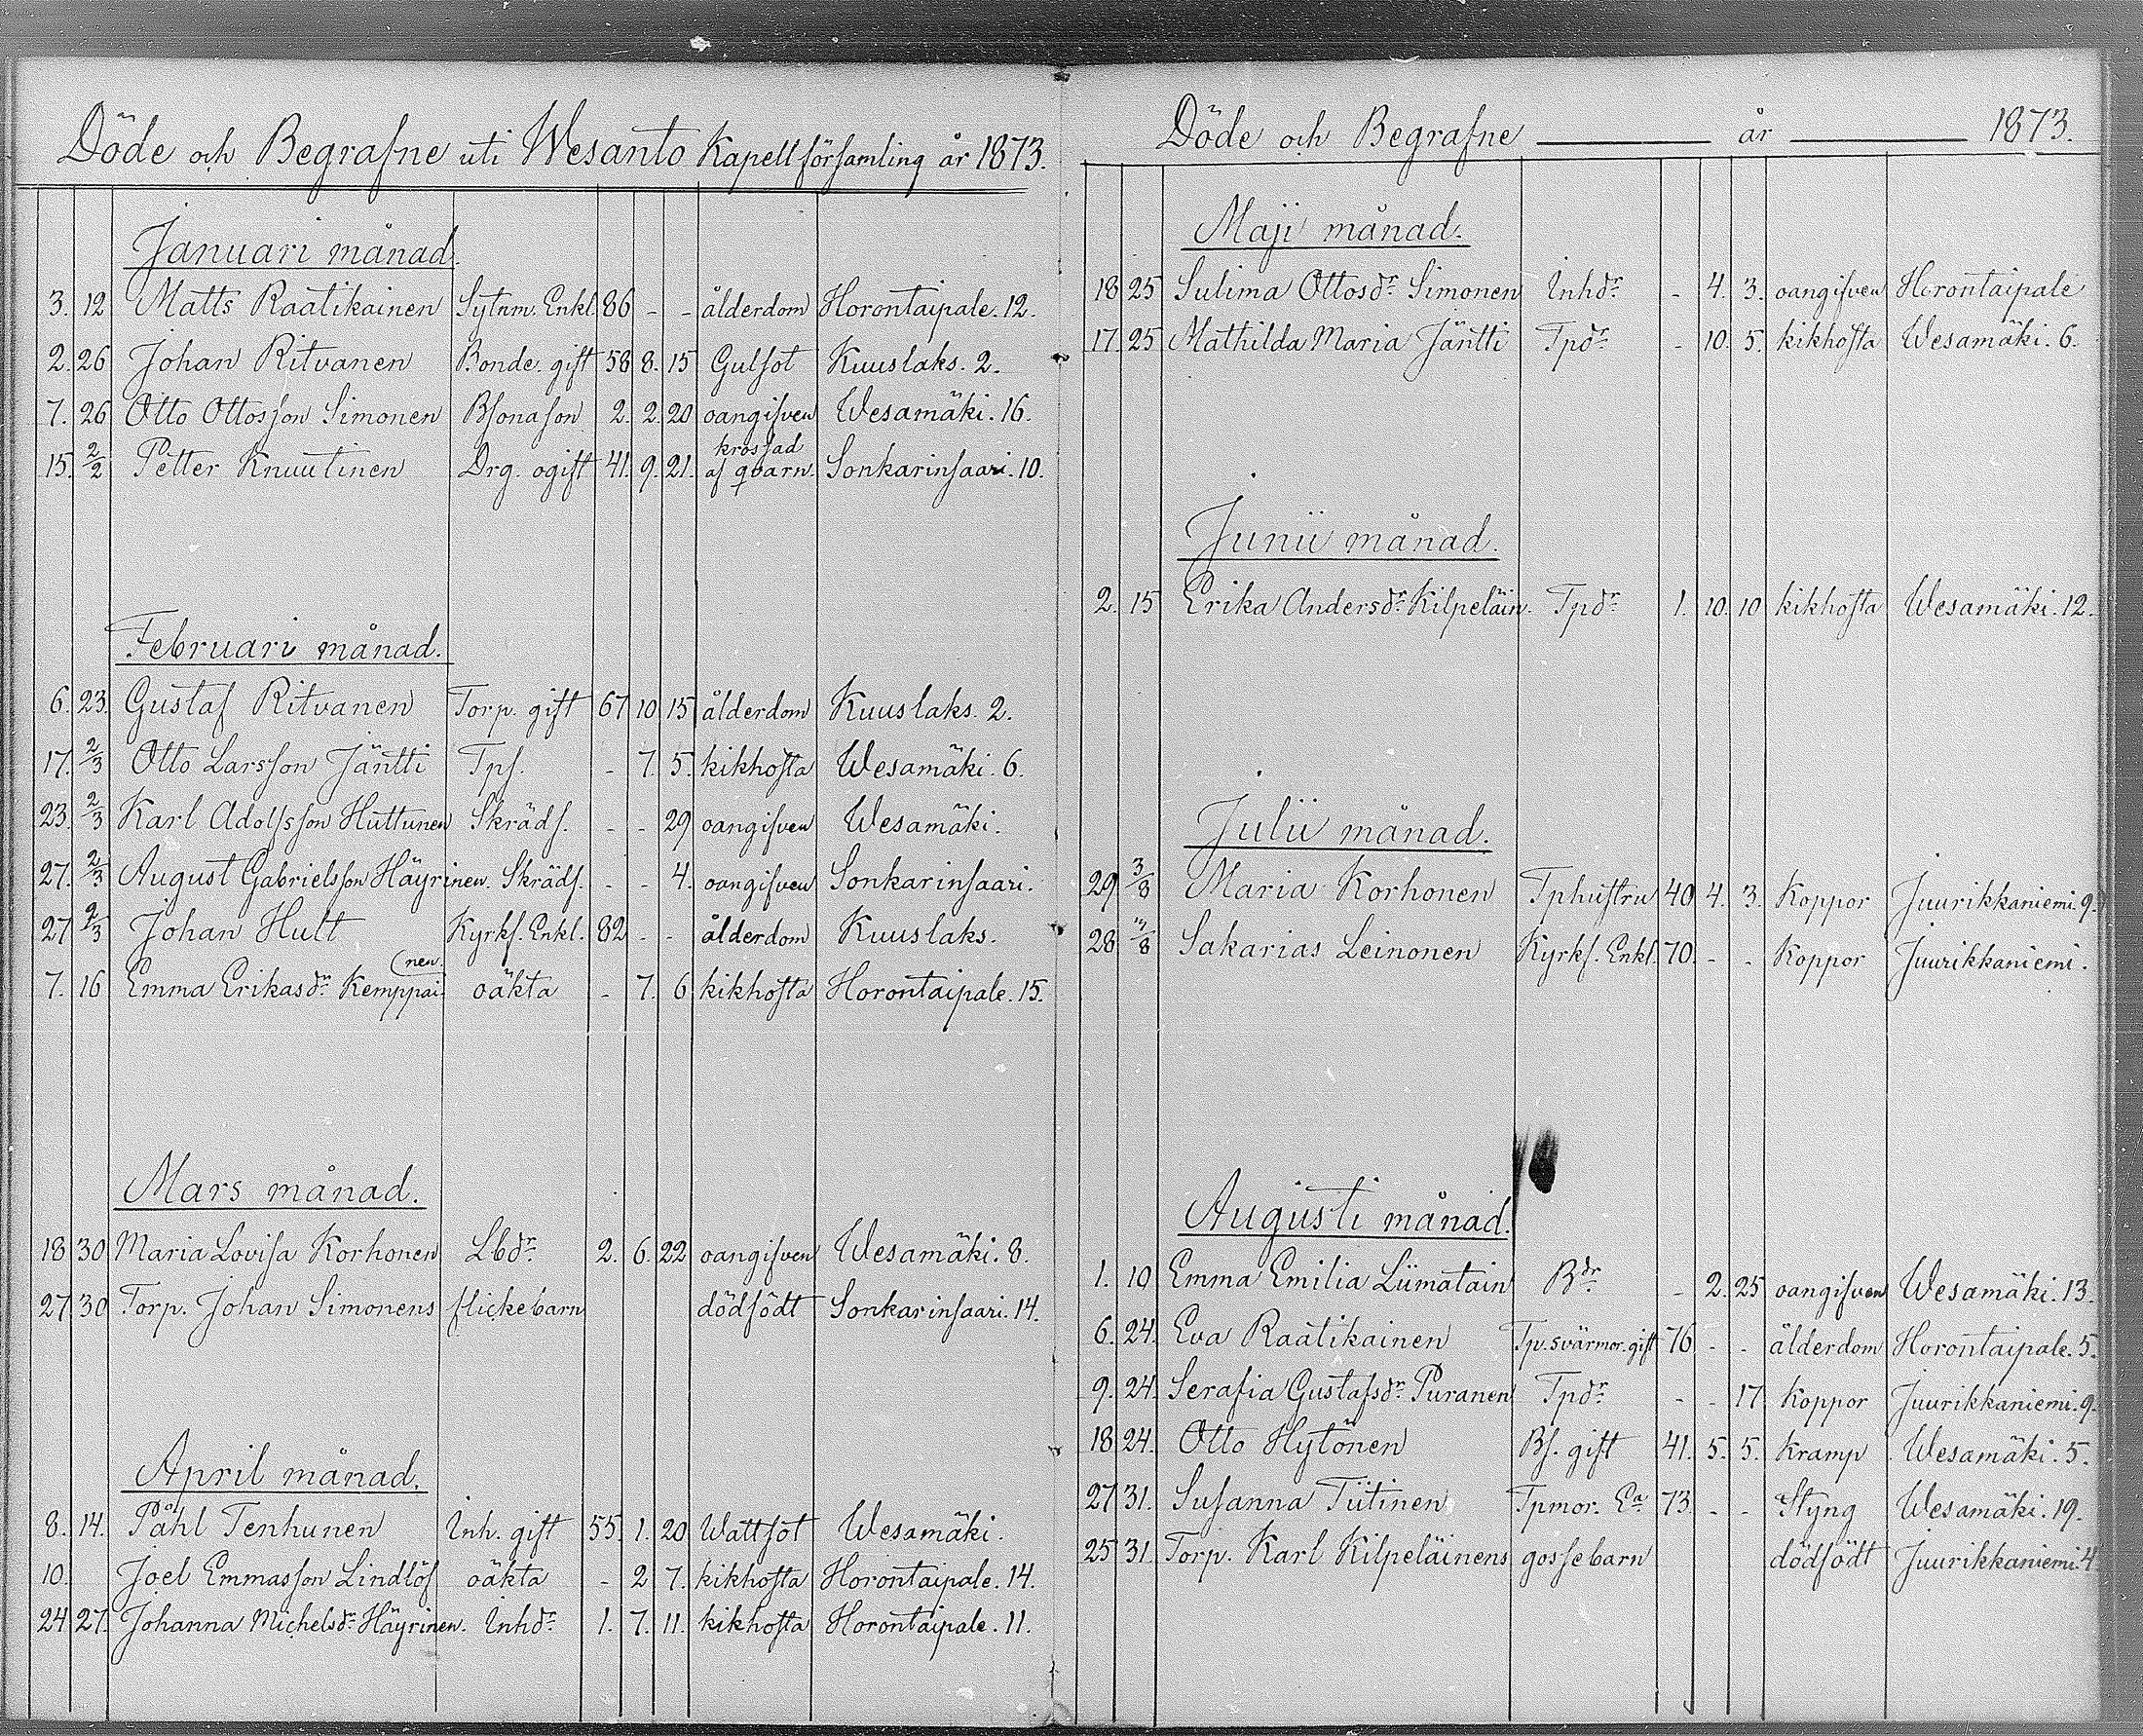 Döde och Begrafne uti Wesanto Kapellförsamling år 1873.
Januari månad.
3. 12 Matts Raatikainen Sytnm. Enkl. 86 - - ålderdom Horontaipale. 12.
2. 26 Johan Ritvanen Bonde. gift 58 8. 15 Gulsot Kuuslaks. 2.
7. 26 Otto Ottosson Simonen Bsonason 2. 2. 20 oangifven Wesamäki. 16.
15. 2/2 Petter Knuutinen Drg. ogift 41. 9. 21. krossad af qvarn. Sonkarinsaari. 10.
Februari månad.
6. 23. Gustaf Ritvanen Torp. gift 67 10 15 ålderdom Kuuslaks. 2.
17. 2/3 Otto Larsson Jäntti Tps. - 7. 5. kikhosta Wesamäki. 6.
23. 2/3 Karl Adolfsson Huttunen Skräds. - - 29 oangifven Wesamäki.
27. 2/3 August Gabrielsson Häyrinen. Skräds. - - 4. oangifven Sonkarinsaari.
27 2/3 Johan Hult Kyrkf. Enkl. 82 - - ålderdom Kuuslaks.
7. 16 Emma Erikasdr Kemppai(nen. oäkta - 7. 6 kikhosta Horontaipale. 15.
Mars månad.
18 30 Maria Lovisa Korhonen Lbdr 2. 6. 22 oangifven Wesamäki. 8.
27 30 Torp. Johan Simonens flickebarn dödfödt Sonkarinsaari. 14.
April månad.
8. 14. Påhl Tenhunen Inh. gift 55. 1. 20 Wattsot Wesamäki.
10. Joel Emmasson Lindlöf oäkta - 2 7. kikhosta Horontaipale. 14.
24 27. Johanna Michelsdr Häyrinen. Inhdr 1. 7. 11. kikhosta Horontaipale. 11.
Döde och Begrafne år 1873.
Maji månad.
18 25 Sulima Ottosdr Simonen Inhdr - 4. 3. oangifven Horontaipale
17. 25 Mathilda Maria Jäntti Tpdr - 10. 5. kikhosta Wesamäki. 6.
Junii månad.
2. 15 Erika Andersdr Kilpeläin. Tpdr 1. 10. 10 kikhosta Wesamäki. 12.
Julii månad.
29 3/8 Maria Korhonen Tphustru 40 4. 3. Koppor Juurikkaniemi. 9.
28 "/8 Sakarias Leinonen Kyrkf. Enkl. 70. - - Koppor Juurikkaniemi.
Augusti månad.
1. 10 Emma Emilia Liimatain Bdr - 2. 25 oangifven Wesamäki. 13.
6. 24. Eva Raatikainen Tp. svärmor. gift 76 - - ålderdom Horontaipale. 5.
9. 24. Serafia Gustafsdr Puranen Tpdr - - 17. Koppor Juurikkaniemi. 9.
18 24. Otto Hytönen Bs. gift 41. 5. 5. Kramp Wesamäki. 5.
27 31. Susanna Tiitinen Tpmor. Ea 73. - - Styng Wesamäki. 19.
25 31. Torp. Karl Kilpeläinens gossebarn dödfödt Juurikkaniemi. 4